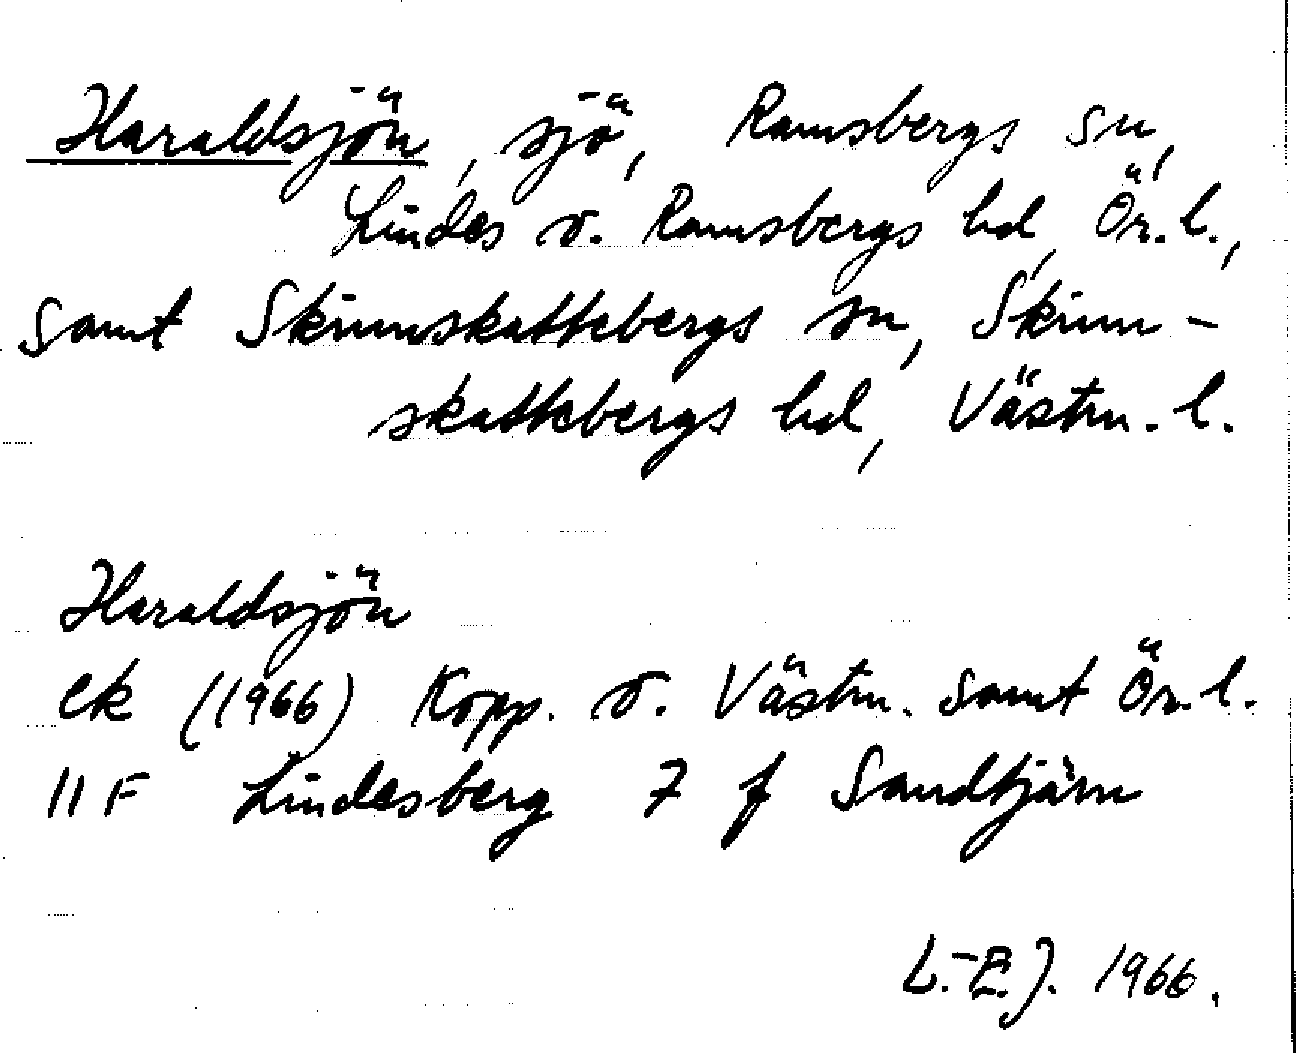 Haraldsjön, sjö, Ramsbergs sn,
Lindes o. Ramsbergs hd, Ör. l.,
samt Skinnskattebergs sn, Skinn-
skattebergs hd, Västm. l.
Haraldsjön
ek (1966) Kopp. o. Västm. samt Ör. l.
11 F Lindesberg 7 f Sandtjärn
L.-E.J. 1966.